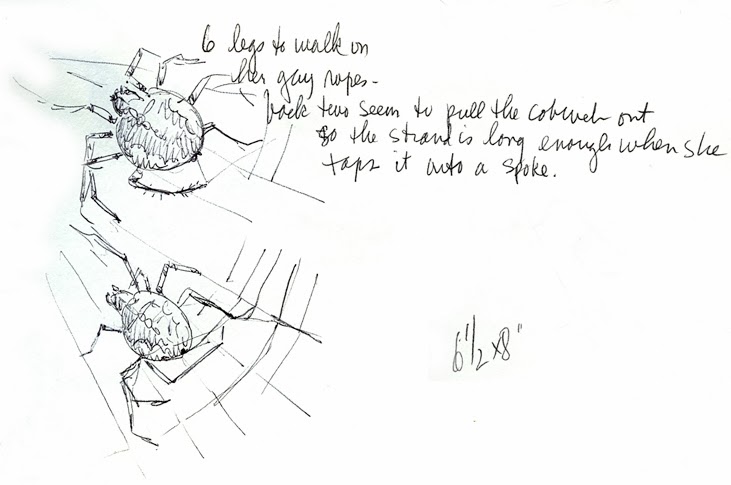 6 legs to walk on
her guy ropes -
back two seem to pull the cobweb out
so the strand is long enough when she
taps it onto a spoke.
6 1/2 x 8"